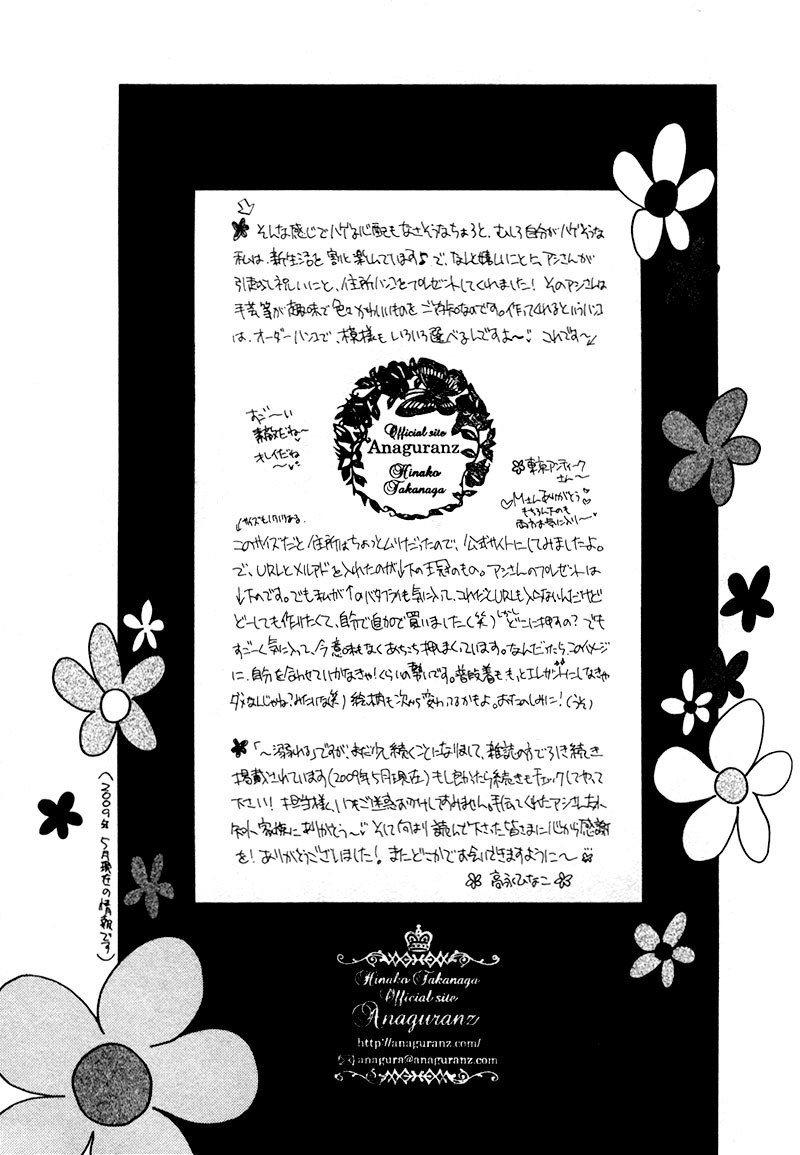 そんな感じでハゲる心配もなさそうなちょろと、むしろ自分がハゲそうな
私は、新生活を割と楽しんでいます♪で、なんと嬉しいことにアシさんが
引越し祝いにと、住所ハンコをプレゼントしてくれました!そのアシさんは
手芸等が趣味で色々かわいいものをご存知なのです。作ってくれるというハンコ
は、オーダーハンコで、模様もいろいろ選べるんですよ〜 これです〜
すご〜い
素敵だね〜
キレイだね
〜
Official site
Anaguranz
Hinako
Takanaga
東京アンティーク
さん〜
Mさんありがとう
もちろん下のも
両方お気に入り〜
サイズもいろいろある。
このサイズだと住所はちょっとムリだったので、公式サイトにしてみましたよ。
で、URLとメルアドを入れたのが↓下の王冠のもの。アシさんのプレゼントは
↓下のです。でも私が↑のバタフライも気に入って、これだとURLも入らないんだけど
どーしても作りたくて、自分で自力で買いました(笑)しかしどこに押すの?でも
すごーく気に入って、今意味もなくあちこち押しまくっています。なんだったら、このイメージ
に、自分を合わせていかなきゃ!くらいの勢いです。普段着ももっとエレガントにしなきゃ
ダメなんじゃね?みたいな(笑)絵柄も次から変わってるかもよ。おたのしみに!(うそ)
「〜溺れる」ですが、まだ少し続くことになりまして、雑誌の方でひき続き
掲載されています(2009年5月現在)もしよかったら続きもチェックしてやって
下さい!担当様、いつもご迷惑おかけしすみません。手伝ってくれたアシさん、友人
知人、家族にありがとう〜そして何より読んで下さった皆さまに心から感謝
を!ありがとうございました!またどこかでお会いできますように〜
高永ひなこ
(2009年5月現在の情報です)
Hinako Takanaga
Official site
Anaguranz
http://anaguranz.com/
anagura@anaguranz.com